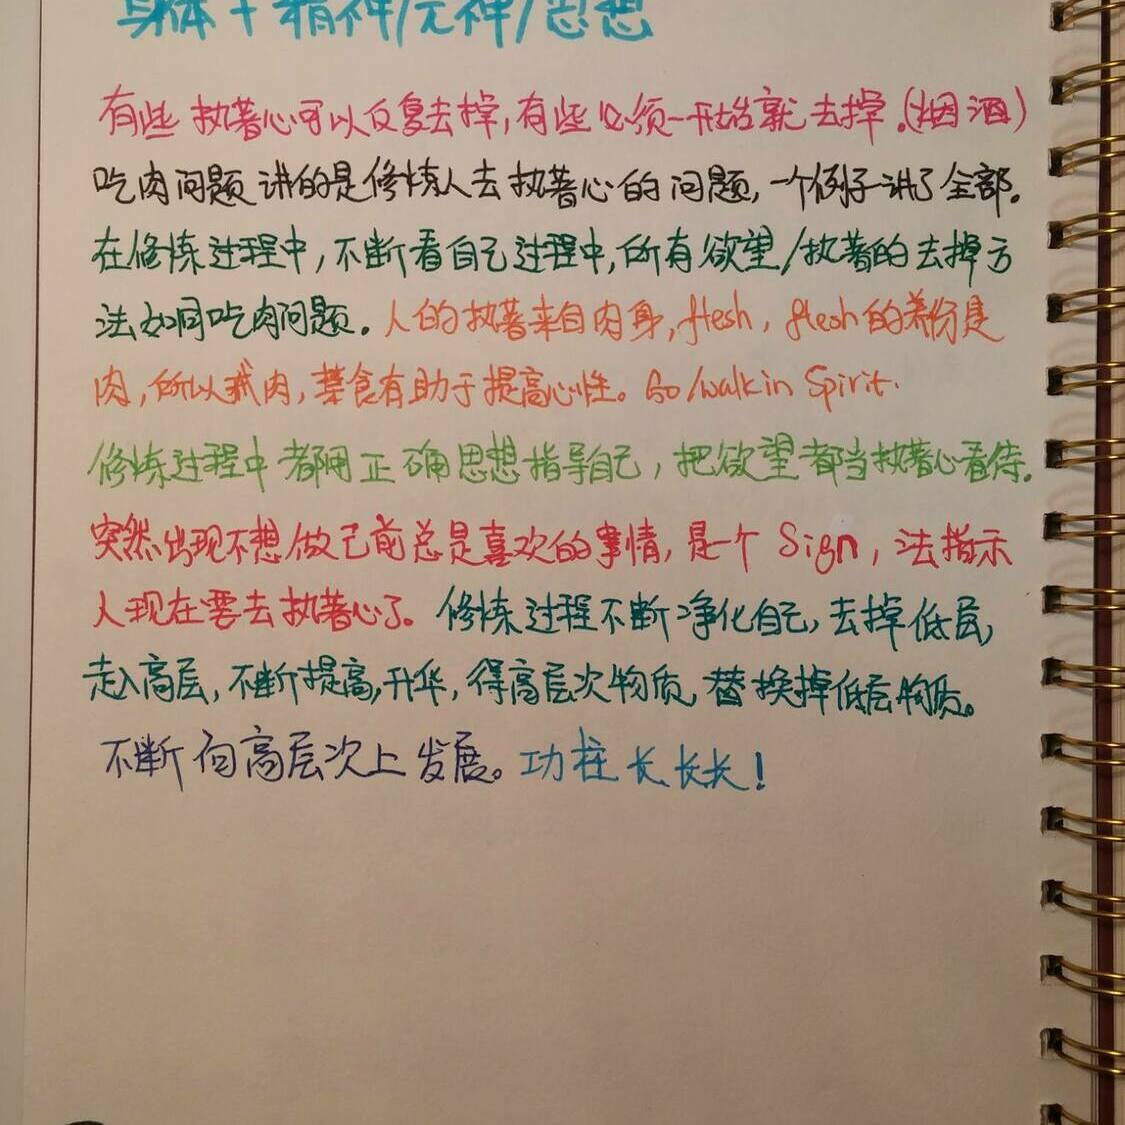 身体+精神/元神/思想
有些执著心可以反复去掉,有些必须一开始就去掉.(烟酒)
吃肉问题讲的是修炼人去执著心的问题,一个例子讲了全部。
在修炼过程中,不断看自己过程中,所有欲望/执著的去掉方
法如同吃肉问题。人的执著来自肉身,flesh,flesh的养份是
肉,所以戒肉,菜食有助于提高心性。So/walk in Spirit.
修炼过程中都用正确思想指导自己,把欲望都当执著心看待.
突然出现不想做已前总是喜欢的事情,是一个Sign,法指示
人现在要去执著心了。修炼过程不断净化自己,去掉低层,
走入高层,不断提高,升华,得高层次物质,替换掉低层物质。
不断向高层次上发展。功柱长长长!